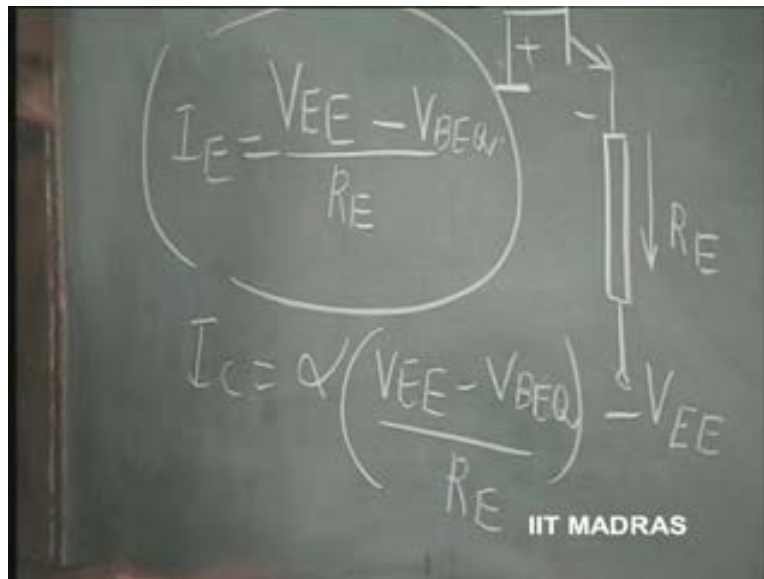 I_E = (V_EE - V_BEQ) / R_E
+
-
R_E
I_C = α((V_EE - V_BEQ) / R_E)
-V_EE
IIT MADRAS